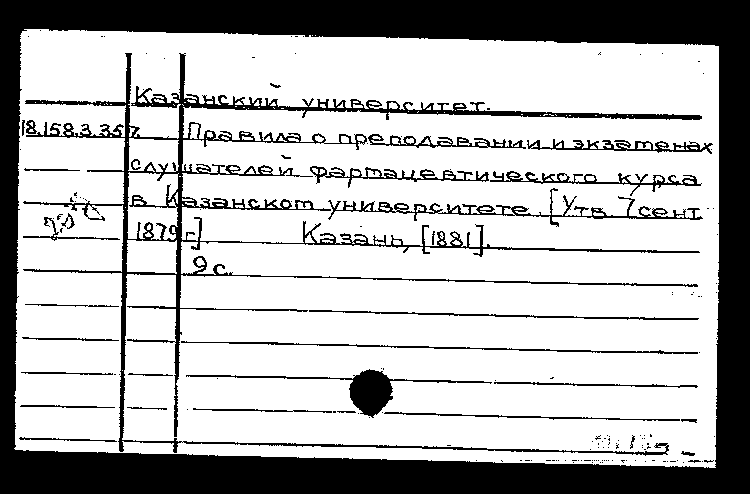 Казанский университет.
18.158.3.357. Правила о преподавании и экзаменах
слушателей фармацевтического курса
в Казанском университете. [Утв. 7 сент.
1879 г.] Казань, [1881].
9 с.